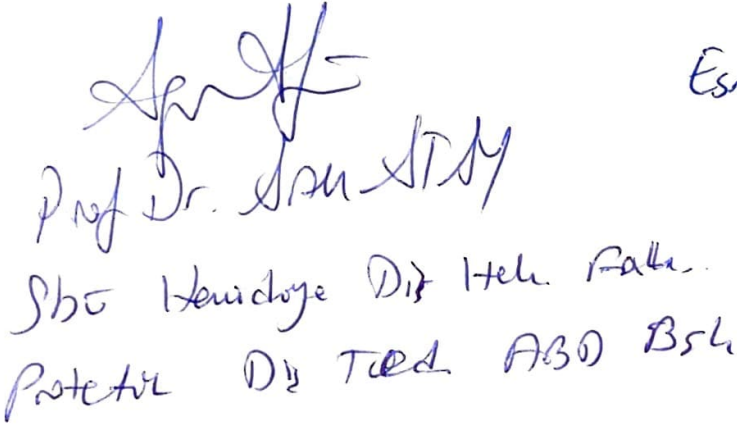 Es
Prof Dr.
SBÜ Hamidiye Diş Hek. Fak.
Protetik Diş Ted. ABD Bşk